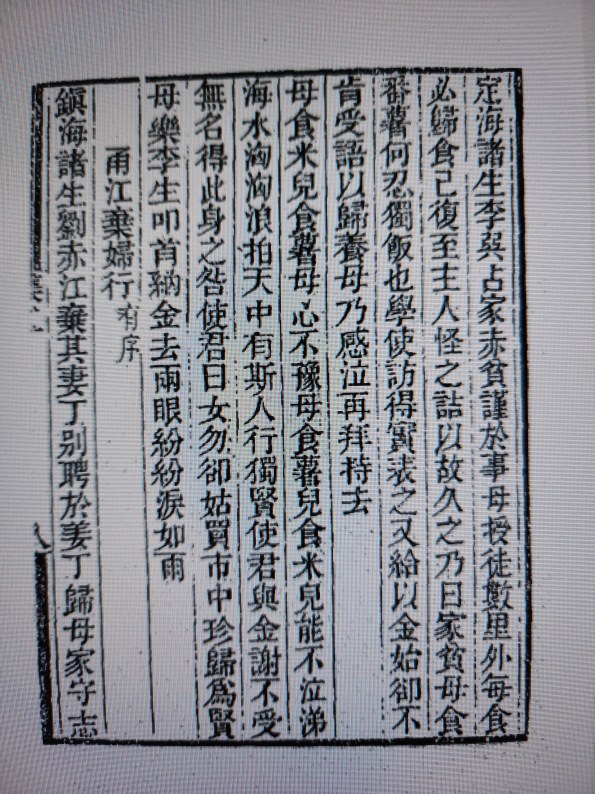 定海諸生李巽占家赤貧謹於事母授徒數里外每食
必歸食已復至主人怪之詰以故久之乃曰家貧母食
番薯何忍獨飯也學使訪得實表之又給以金始卻不
肯受語以歸養母乃感泣再拜持去
母食米兒食薯母心不豫母食薯兒食米兒能不泣涕
海水洶洶浪拍天中有斯人行獨賢使君與金謝不受
無名得此身之咎使君曰女勿卻姑買市中珍歸爲賢
母樂李生叩首納金去兩眼紛紛淚如雨
甬江棄婦行有序
鎭海諸生劉赤江棄其妻丁别聘於姜丁歸母家守志